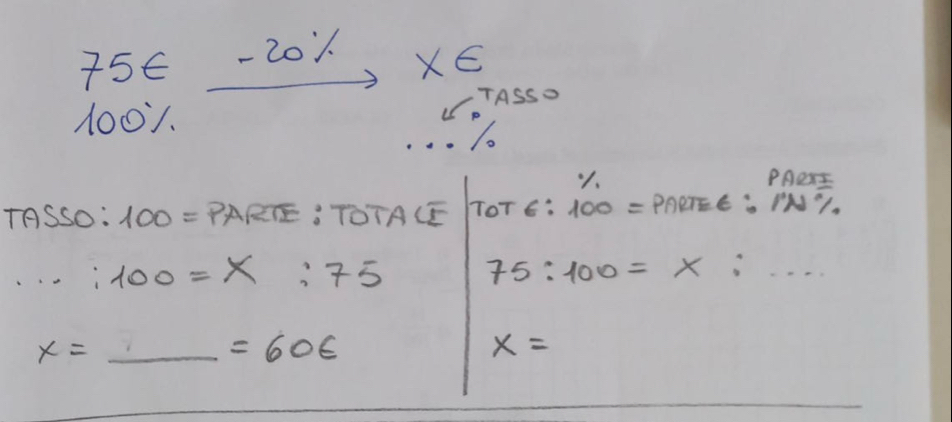 75€ -20% x €
100% TASSO
...%
TASSO : 100 = PARTE : TOTALE
... : 100 = X : 75
x = ____ = 60€
% PARTE
TOT € : 100 = PARTE € : IN %
75 : 100 = x : ....
x =